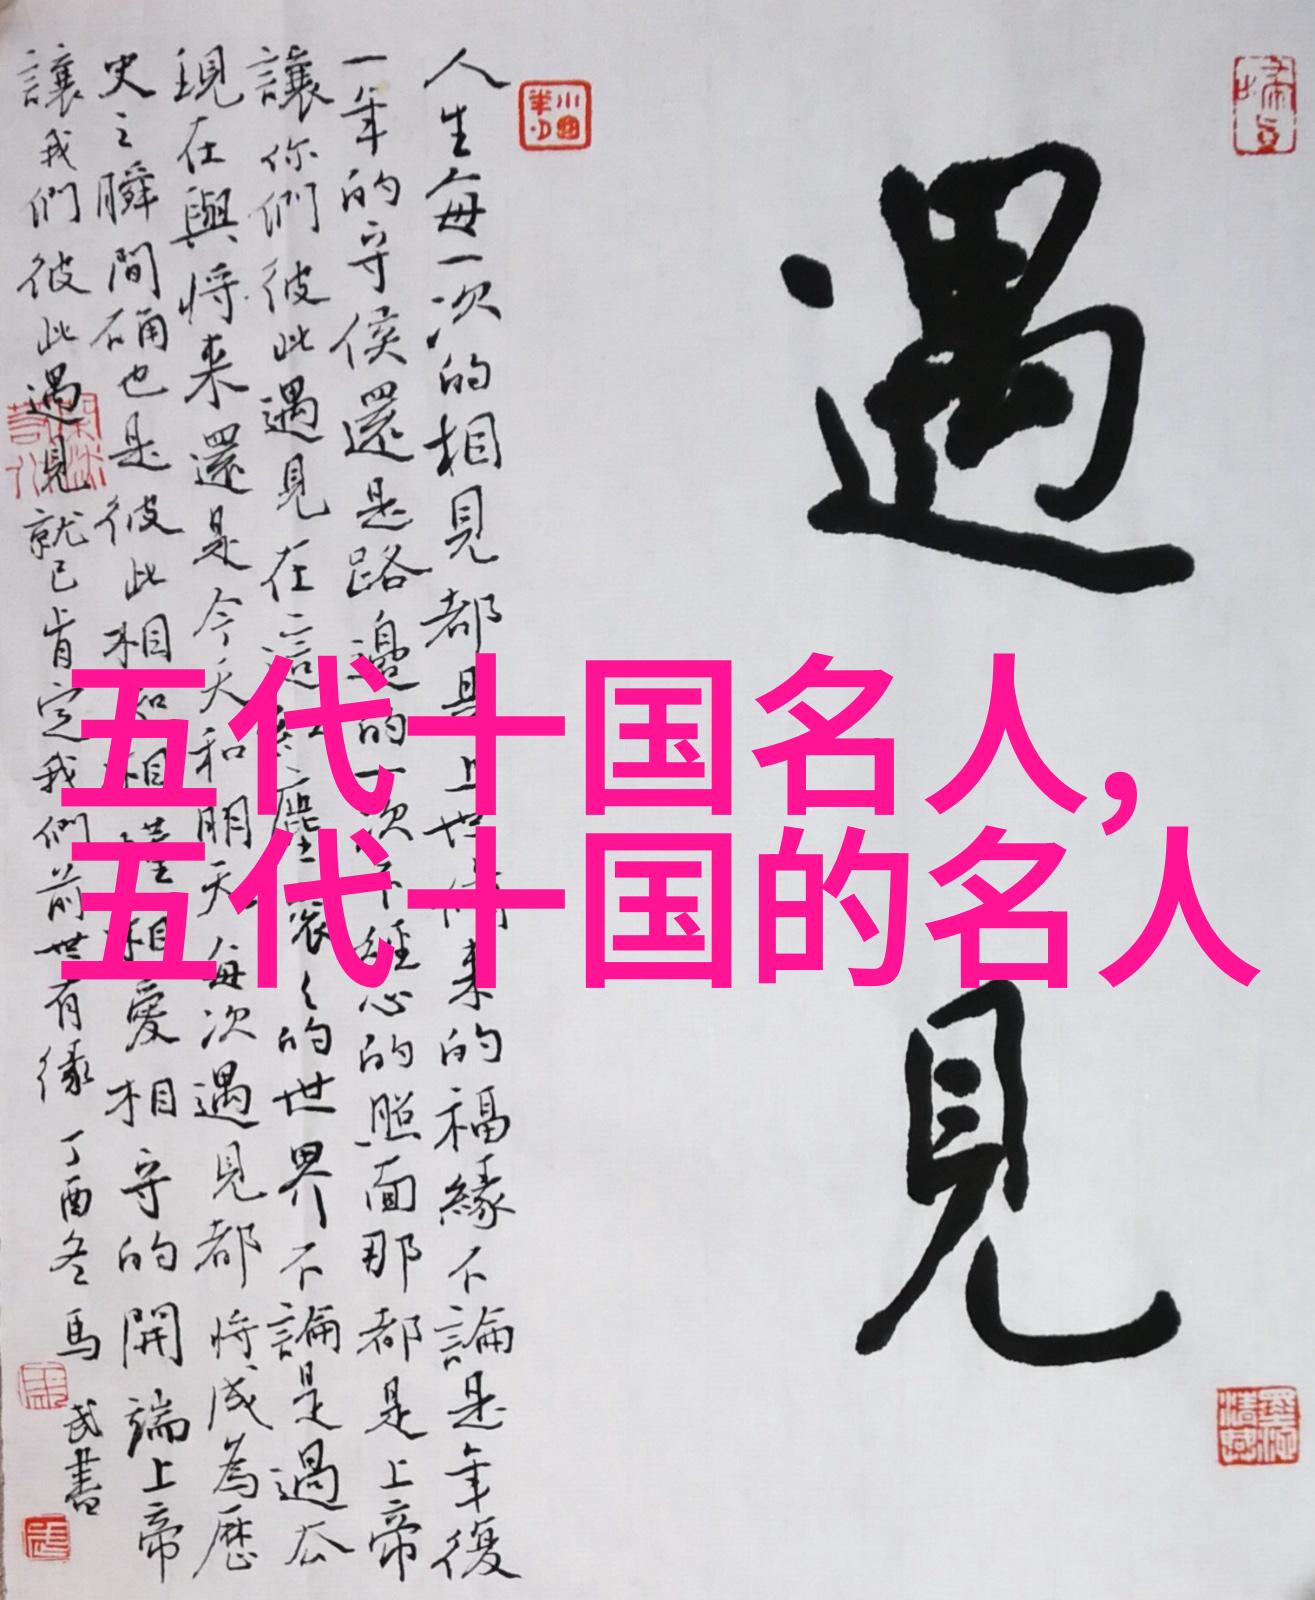 五代十国名人,
五代十国的名人
遇見
人生每一次的相見都是上世来的福緣不論是年復
一年的守侯還是路邊的一次不經心的照面那都是上帝
讓你們彼此遇見在這塵滾々的世界不論是過去
現在與將来還是今天和明天每次遇見都將成為歷
史之瞬間确也是彼此相知相相愛相守的開端上帝
讓我們彼此遇見就已肯定我們前世有缘 丁酉冬馬武書